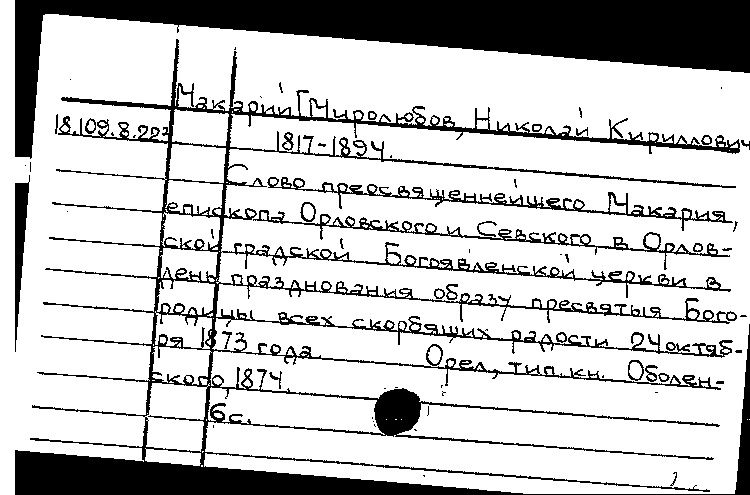 Макарий [Миролюбов, Николай Кириллович
18.109.8.22
1817-1894.
Слово преосвященнейшего Макария,
епископа Орловского и Севского, в Орлов-
ской градской Богоявленской церкви в
день празднования образу пресвятыя Бого-
родицы всех скорбящих радости 24 октяб-
ря 1873 года. Орел, тип. кн. Оболен-
ского, 1874.
6 с.